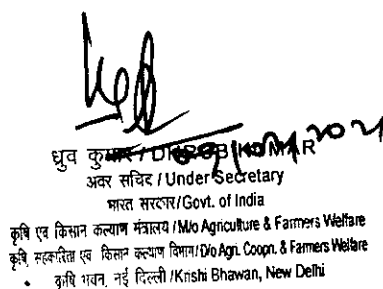 ध्रुव कुमार / DHRUB KUMAR
अवर सचिव / Under Secretary
भारत सरकार/Govt. of India
कृषि एवं किसान कल्याण मंत्रालय / M/o Agriculture & Farmers Welfare
कृषि, सहकारिता एवं किसान कल्याण विभाग / D/o Agri. Coopn. & Farmers Welfare
कृषि भवन, नई दिल्ली /Krishi Bhawan, New Delhi